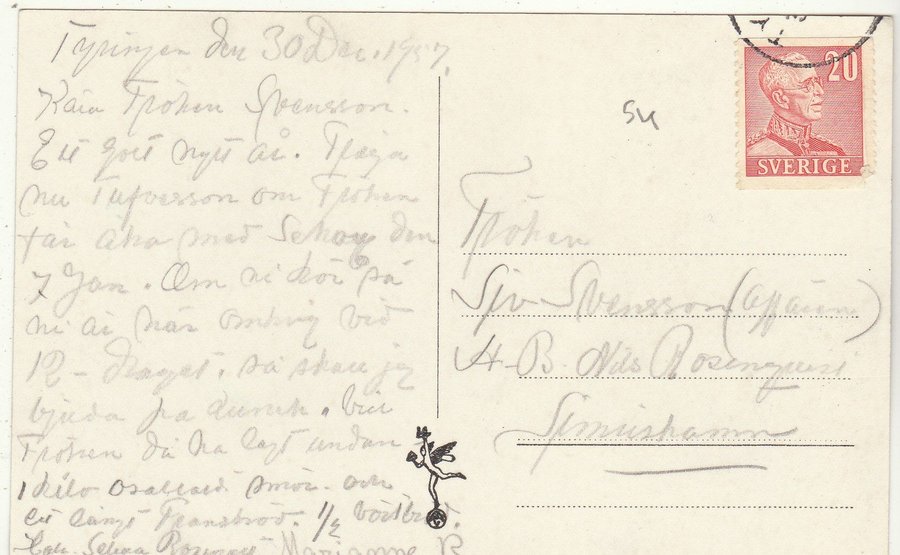 Tyringen den 30 Dec. 1957.
Kära Fröken Svensson.
Ett gott nytt år. Fråga
nu Tufvesson om Fröken
får åka med Schou den
7 Jan. Om ni kör så
ni är här omkring vid
12-draget. så skall jag
bjuda på lunch. Vill
Fröken då ha lagt undan
1 kilo osaltad smör. och
ett långt Franskbröd. 1/2
Marianne R
54
20
SVERIGE
Fröken
Siv Svensson (affären)
A-B. Nils Rosenquist
Simrishamn